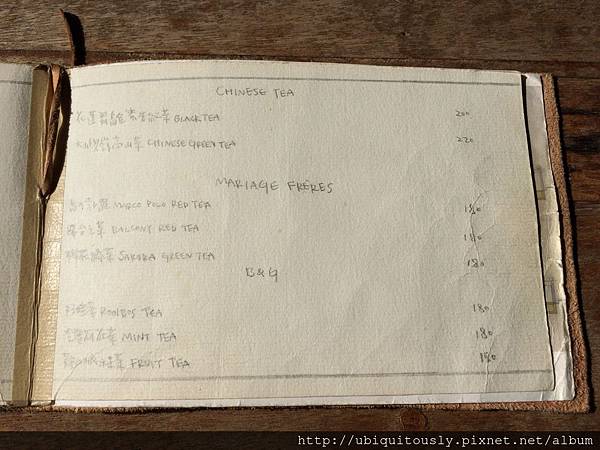 CHINESE TEA
紅茶 BLACK TEA 200
高山茶 CHINESE GREEN TEA 220
MARIAGE FRÈRES
MARCO POLO RED TEA 180
陽台紅茶 BALCONY RED TEA 180
櫻花綠茶 SAKURA GREEN TEA 180
B&G
ROOIBOS TEA 180
MINT TEA 180
FRUIT TEA 180
http://ubiquitously.pixnet.net/album